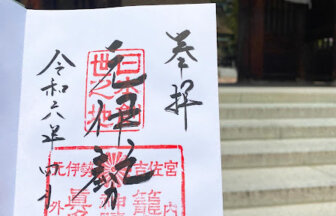 奉拝
元伊勢
日本創
世之地
元伊勢 吉佐宮
籠神
真名
内
外
令和六年四月